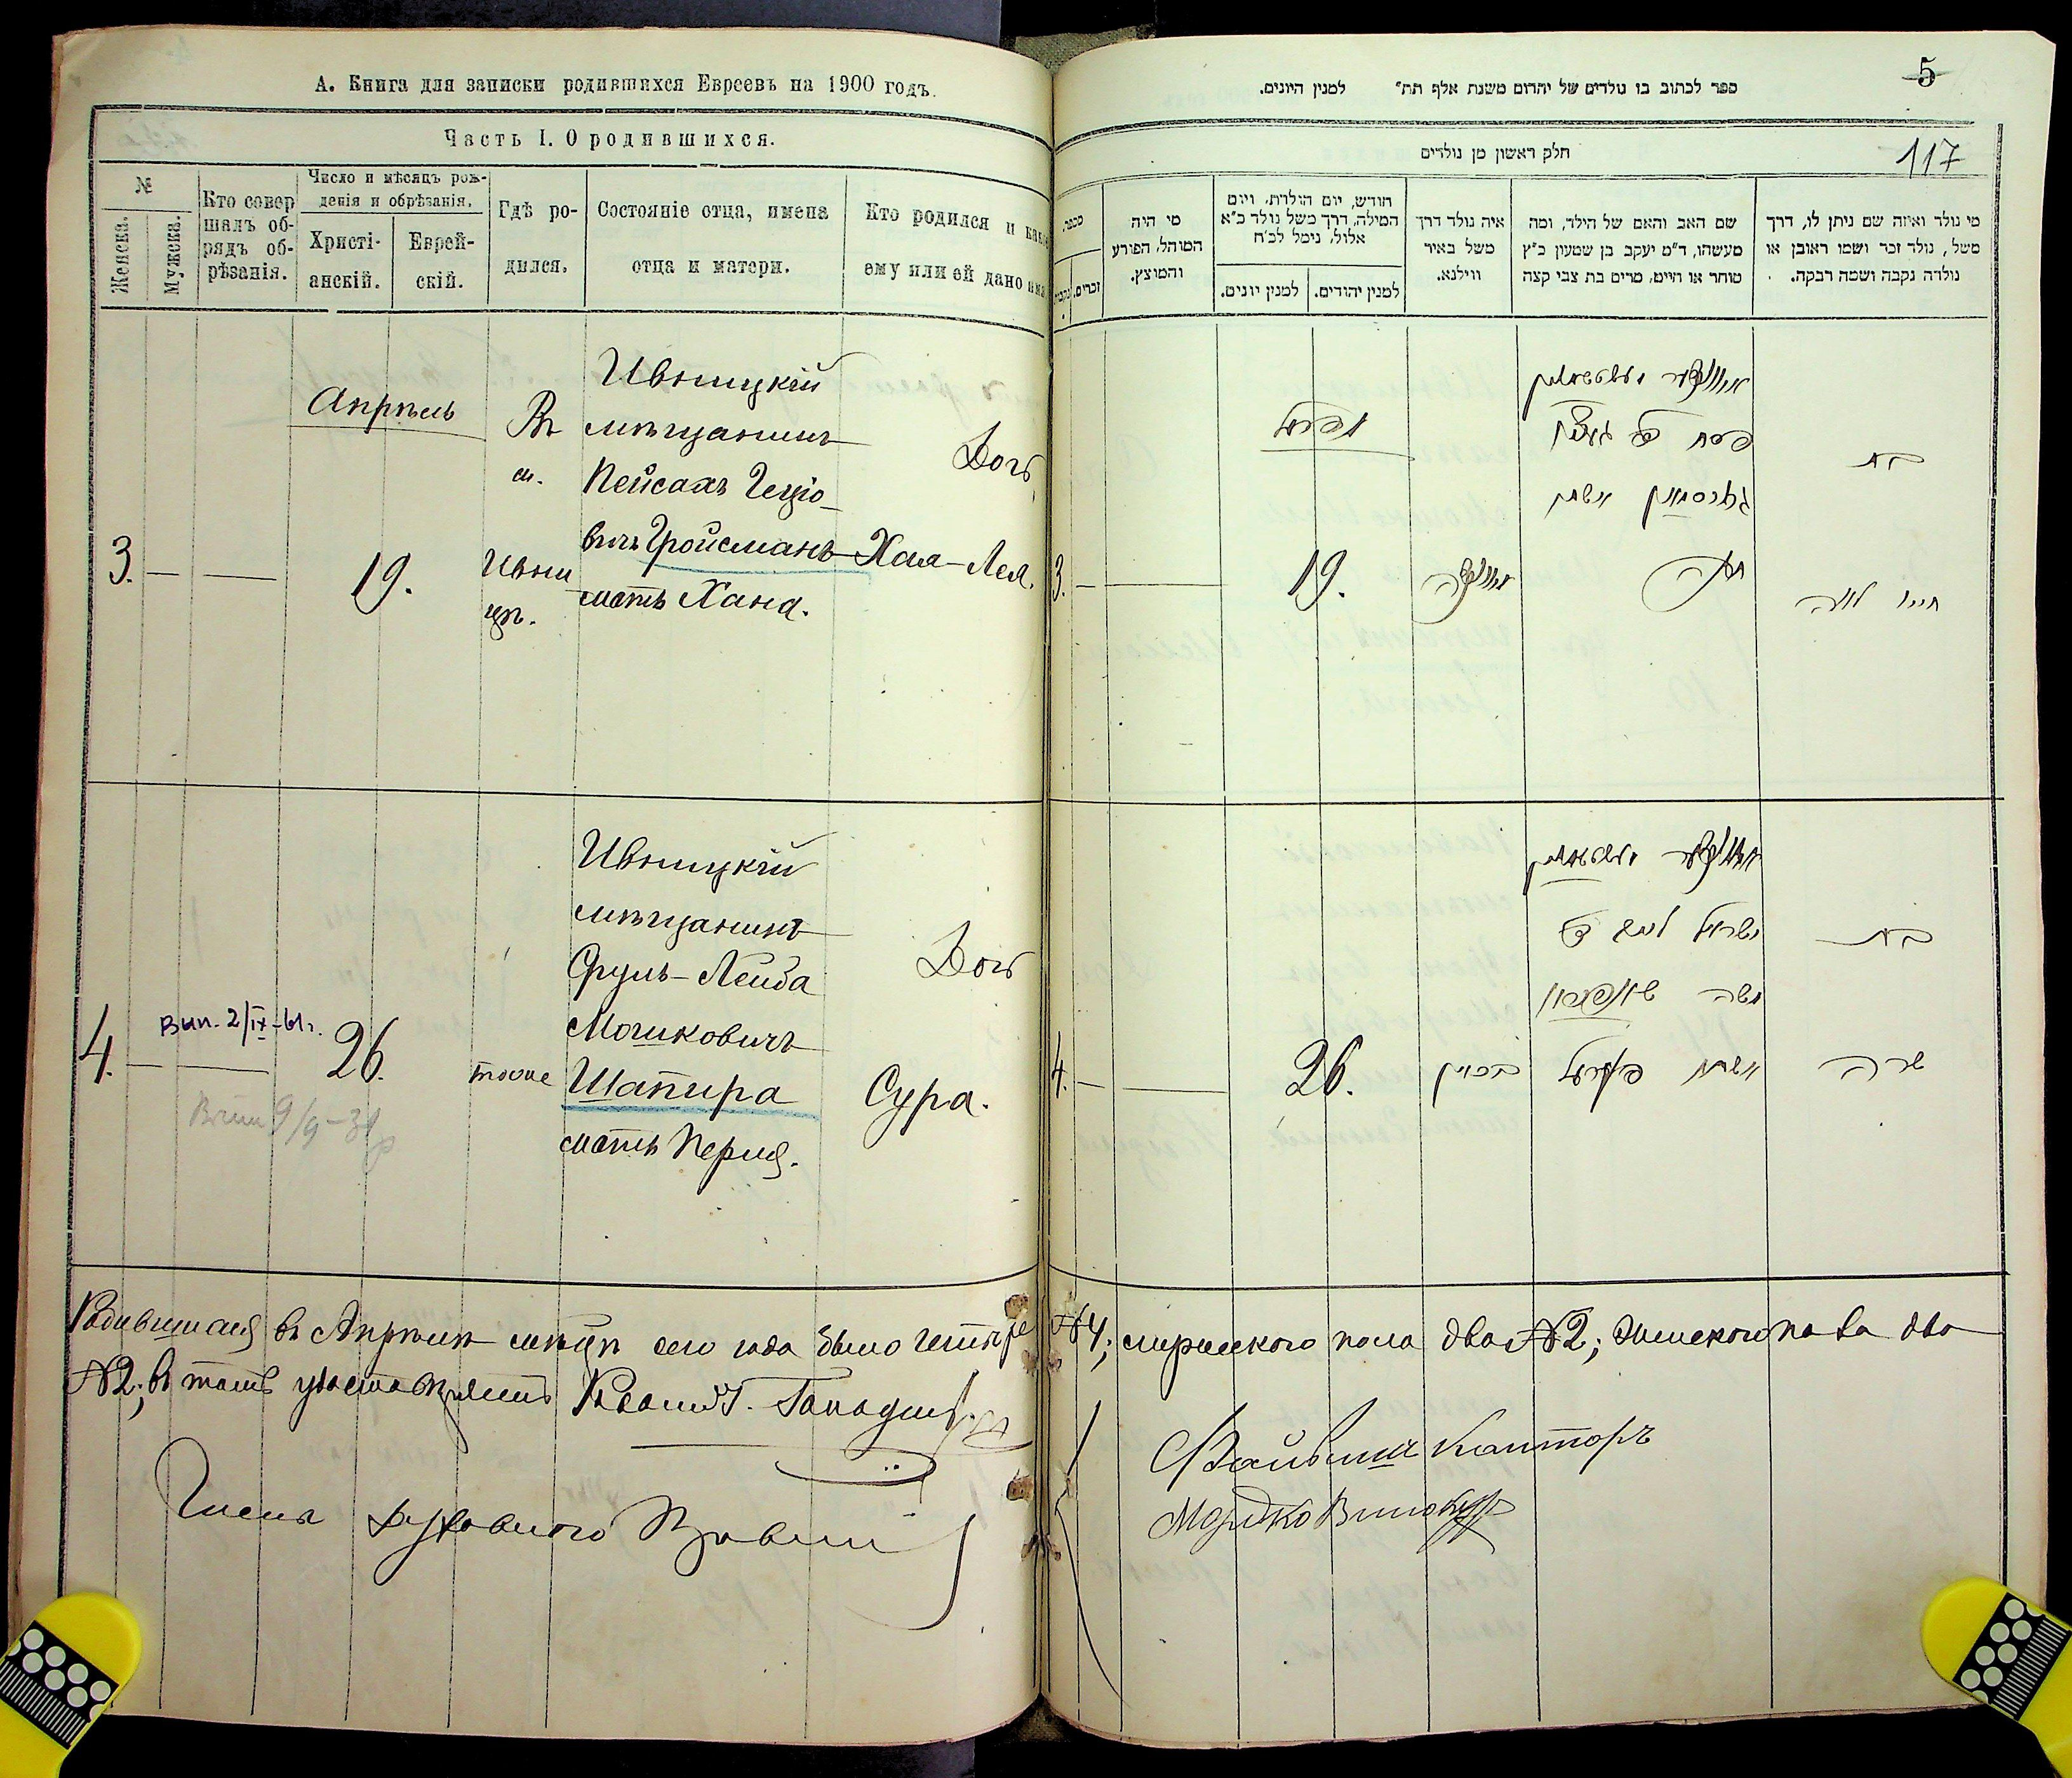 А. Книга для записки родившихся Евреевъ на 1900 годъ.
Часть I. О родившихся.
№
Женска.
Мужска.
Кто совер
шалъ об-
рядъ об-
рѣзанія.
Число и мѣсяцъ рож-
денія и обрѣзанія.
Христі-
анскій.
Еврей-
скій.
Гдѣ ро-
дился.
Состояніе отца, имена
отца и матери.
Кто родился и какое
ему или ей дано имя
3.
Апрѣль
19.
Въ
м.
Ивни
цѣ.
Ивницкій
мѣщанинъ
Пейсахъ Геціо-
вичъ Гройсманъ
мать Хана.
Дочь
Хая-Лея.
4.
Вып. 2/IX-61г.
26.
тоже
Ивницкій
мѣщанинъ
Сруль-Лейба
Мошковичъ
Шапира
мать Перля.
Дочь
Сура.
Родившихся въ Апрѣлѣ мѣсяцѣ сего года было четыре
№2; въ томъ удостовѣряемъ
Членъ Духовного Правлен
5
ספר לכתוב בו נולדים של יהדום משנת אלף תת״ למנין היונים.
חלק ראשון מן נולדים
117
מספר.
זכרים.
נקבות
מי היה
המוהל, הפורע
והמוצץ.
חודש, יום הולדת, ויום
המילה, דרך משל נולד כ״א
אלול, נימל לכ״ח
למנין יונים.
למנין יהודים.
איה נולד דרך
משל באיר
ווילנא.
שם האב והאם של הילד, ומה
מעשהו, ד״מ יעקב בן שמעון כ״ץ
סוחר או חייט, מרים בת צבי קצה
מי נולד ואיזה שם ניתן לו, דרך
משל, נולד זכר ושמו ראובן או
נולדה נקבה ושמה רבקה.
3.
אפריל
19.
חנה
בת
חיה לאה
4.
26.
ישראל ליב ב״ר
משה שאפירא
אשתו פערל
בת
שרה
№4; мужескаго пола два №2; женскаго пола два
Вайвиш Канторъ
Мордко Винокур